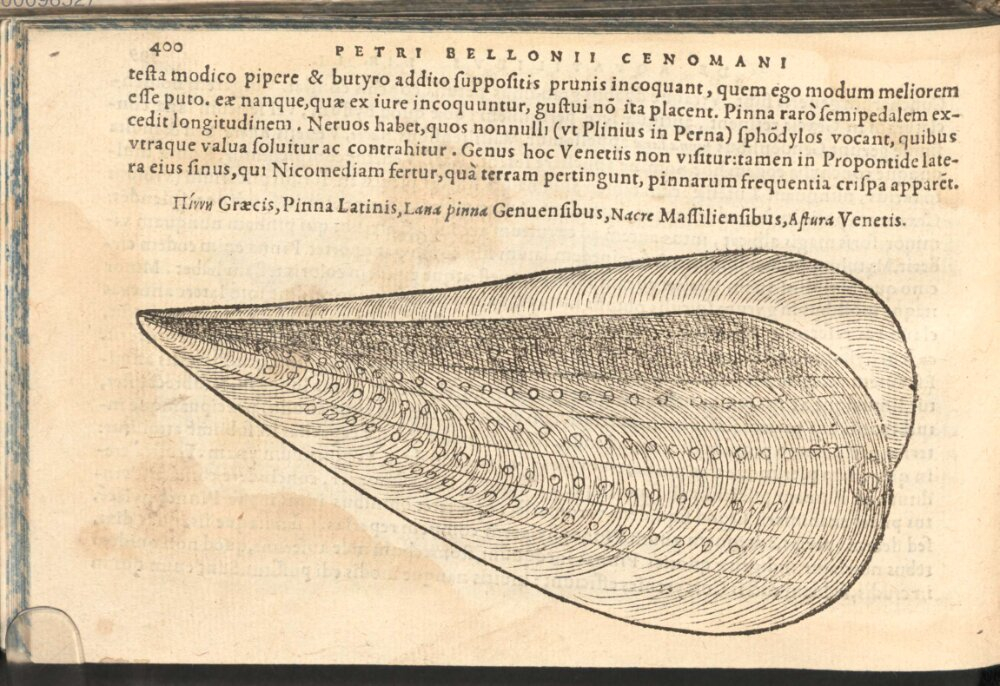 400 PETRI BELLONII CENOMANI
teſta modico pipere & butyro addito ſuppoſitis prunis incoquant, quem ego modum meliorem
eſſe puto. eæ nanque, quæ ex iure incoquuntur, guſtui nō ita placent. Pinna rarò ſemipedalem ex-
cedit longitudinem. Neruos habet, quos nonnulli (vt Plinius in Perna) ſphōdylos vocant, quibus
vtraque valua ſoluitur ac contrahitur. Genus hoc Venetiis non viſitur: tamen in Propontide late-
ra eius ſinus, qui Nicomediam fertur, quà terram pertingunt, pinnarum frequentia criſpa apparēt.
Πίννη Græcis, Pinna Latinis, Lana pinna Genuenſibus, Nacre Maſſilienſibus, Aſtura Venetis.